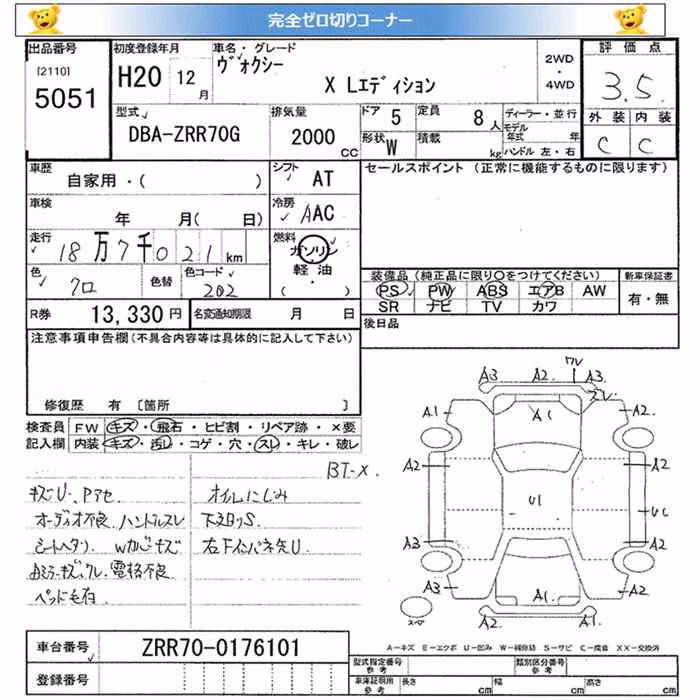 完全ゼロ切りコーナー
出品番号 初度登録年月 車名・グレード 評価点
[2110] 5051 H20 12月 ヴォクシー X Lエディション 2WD・4WD 3.5
型式 排気量 ドア 5 定員 8人 ディーラー・並行 外装 内装
DBA-ZRR70G 2000 CC 形状 W 積載 kg モデル年式 年 ハンドル 左・右 C C
車歴 自家用・( ) シフト AT セールスポイント (正常に機能するものに限ります)
車検 年 月( 日) 冷房 AAC
走行 18万7千021km 燃料 ガソリン・軽油・( )
色 クロ 色替 色コード 202
装備品 (純正品に限り○をつけてください) 新車保証書
PS PW ABS エアB AW 有・無
SR ナビ TV カワ
R券 13,330円 名変通知期限 月 日 後日品
注意事項申告欄(不具合内容等は具体的に記入して下さい)
修復歴 有 [箇所 ]
検査員 FW キズ・飛石・ヒビ割・リペア跡・×要
記入欄 内装 キズ・汚し・コゲ・穴・スレ・キレ・破レ
BT-X
キズU、Pアセ オイルにじみ
オーディオ不良 ハンドルスレ 下廻りS
シートヘタリ Wカビキズ
電格不良
ペット毛有
A3 A2 ワレ A3 スレ
A1 A1 A2
A2 A2
U1 U1
A3 A2
A3 A1 A3
スペア A2 A1
A-キズ E-エクボ U-凹み W-補修跡 S-サビ C-腐食 XX-交換済
車台番号 ZRR70-0176101
登録番号
型式指定番号 参考 類別区分番号 参考
車庫証明用 参考 長さ cm 幅 cm 高さ cm